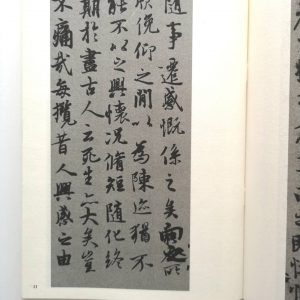 隨事遷感慨係之矣向之所
欣俛仰之閒以為陳迹猶不
能不以之興懷況脩短隨化終
期於盡古人云死生亦大矣豈
不痛哉每攬昔人興感之由